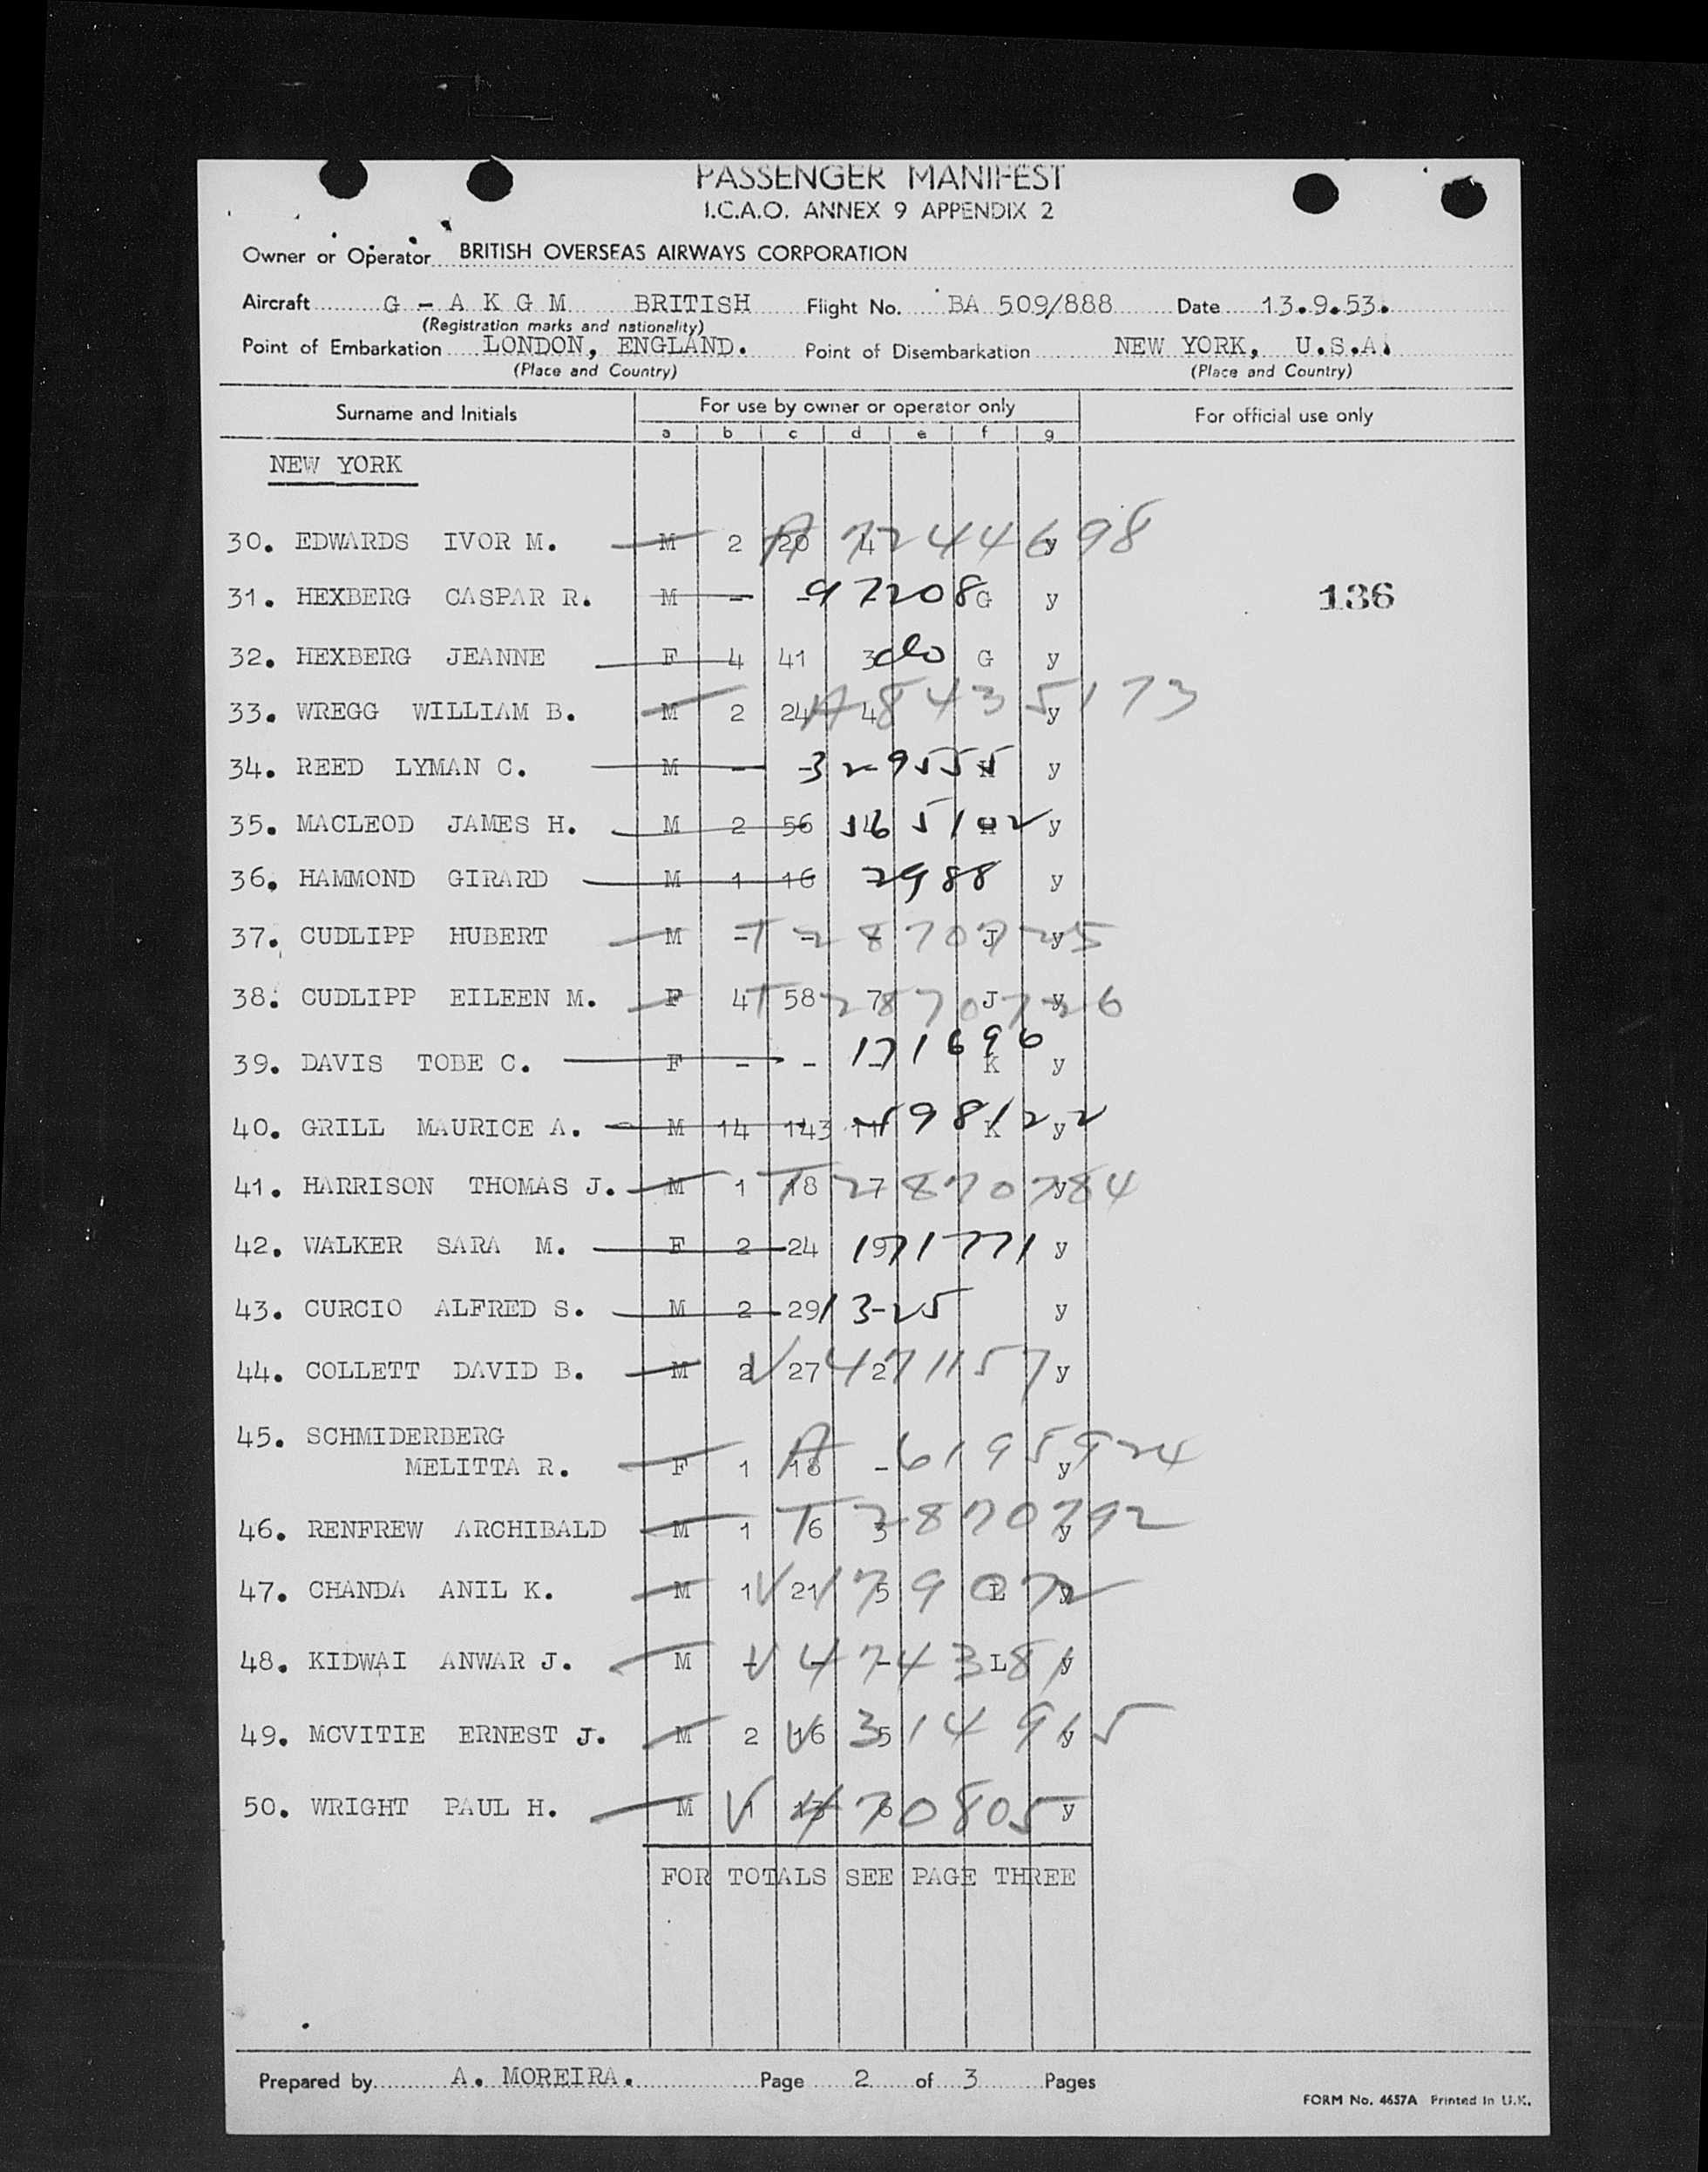 PASSENGER MANIFEST
I.C.A.O. ANNEX 9 APPENDIX 2
Owner or Operator BRITISH OVERSEAS AIRWAYS CORPORATION
Aircraft G - A K G M BRITISH Flight No. BA 509/888 Date 13.9.53.
(Registration marks and nationality)
Point of Embarkation LONDON, ENGLAND. Point of Disembarkation NEW YORK, U.S.A.
(Place and Country) (Place and Country)
Surname and Initials For use by owner or operator only For official use only
a b c d e f g
NEW YORK
30. EDWARDS IVOR M. M 2 20 4 y A 7244698
31. HEXBERG CASPAR R. M - - 97208 G y 136
32. HEXBERG JEANNE F 4 41 3 do G y
33. WREGG WILLIAM B. M 2 24 4 y A8435173
34. REED LYMAN C. M - - 329555 y
35. MACLEOD JAMES H. M 2 56 y
36. HAMMOND GIRARD M 1 16 2988 y
37. CUDLIPP HUBERT M - - - J y T 2870725
38. CUDLIPP EILEEN M. F 4 58 7 J y T 2870726
39. DAVIS TOBE C. F - - - 171696 K y
40. GRILL MAURICE A. M 14 143 11 K y
41. HARRISON THOMAS J. M 1 18 7 y T 2870784
42. WALKER SARA M. F 2 24 171771 y
43. CURCIO ALFRED S. M 2 29 y
44. COLLETT DAVID B. M 2 27 2 y V 4711157
45. SCHMIDERBERG
MELITTA R. F 1 18 - y A 6195924
46. RENFREW ARCHIBALD M 1 6 3 y T 2870792
47. CHANDA ANIL K. M 1 21 5 L y V 179072
48. KIDWAI ANWAR J. M - - - L y V 474381
49. MCVITIE ERNEST J. M 2 16 5 y V 314915
50. WRIGHT PAUL H. M 1 13 6 y V 470805
FOR TOTALS SEE PAGE THREE
Prepared by A. MOREIRA. Page 2 of 3 Pages
FORM No. 4657A Printed in U.K.